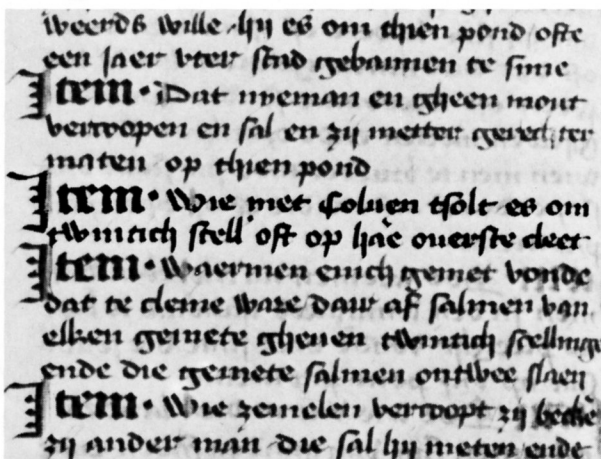 weerds wille hij es om thien pond ofte
een jaer vter stad gebannen te sine
Item · Dat nyeman en gheen mout
vercoopen en sal en zij metter gerechter
maten op thien pond
Item · Wie met Coluen tsolt es om
twintich scell' oft op hae ouerste cleet
Item · Waermen enich gemet vonde
dat te cleine ware daer af salmen van
elken gemete gheuen twintich scellinge
ende die gemete salmen ontwee slaen
Item · Wie zemelen vercoopt zij becke
zij ander man die sal hij meten ende